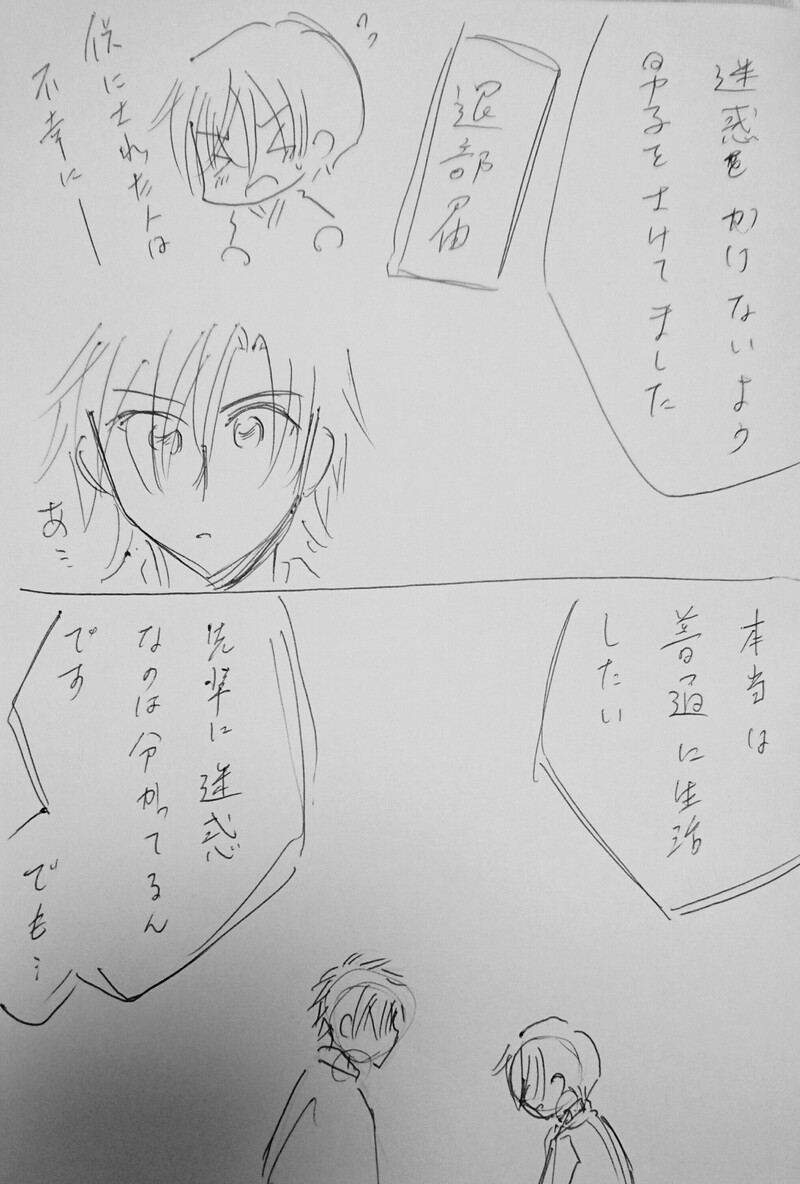 迷惑を
かけないよう
男子をさけてました
退部届
僕にされた人は
不幸に――
あ…
本当は
普通に生活
したい
先輩に迷惑
なのは分かってるん
です
でも…